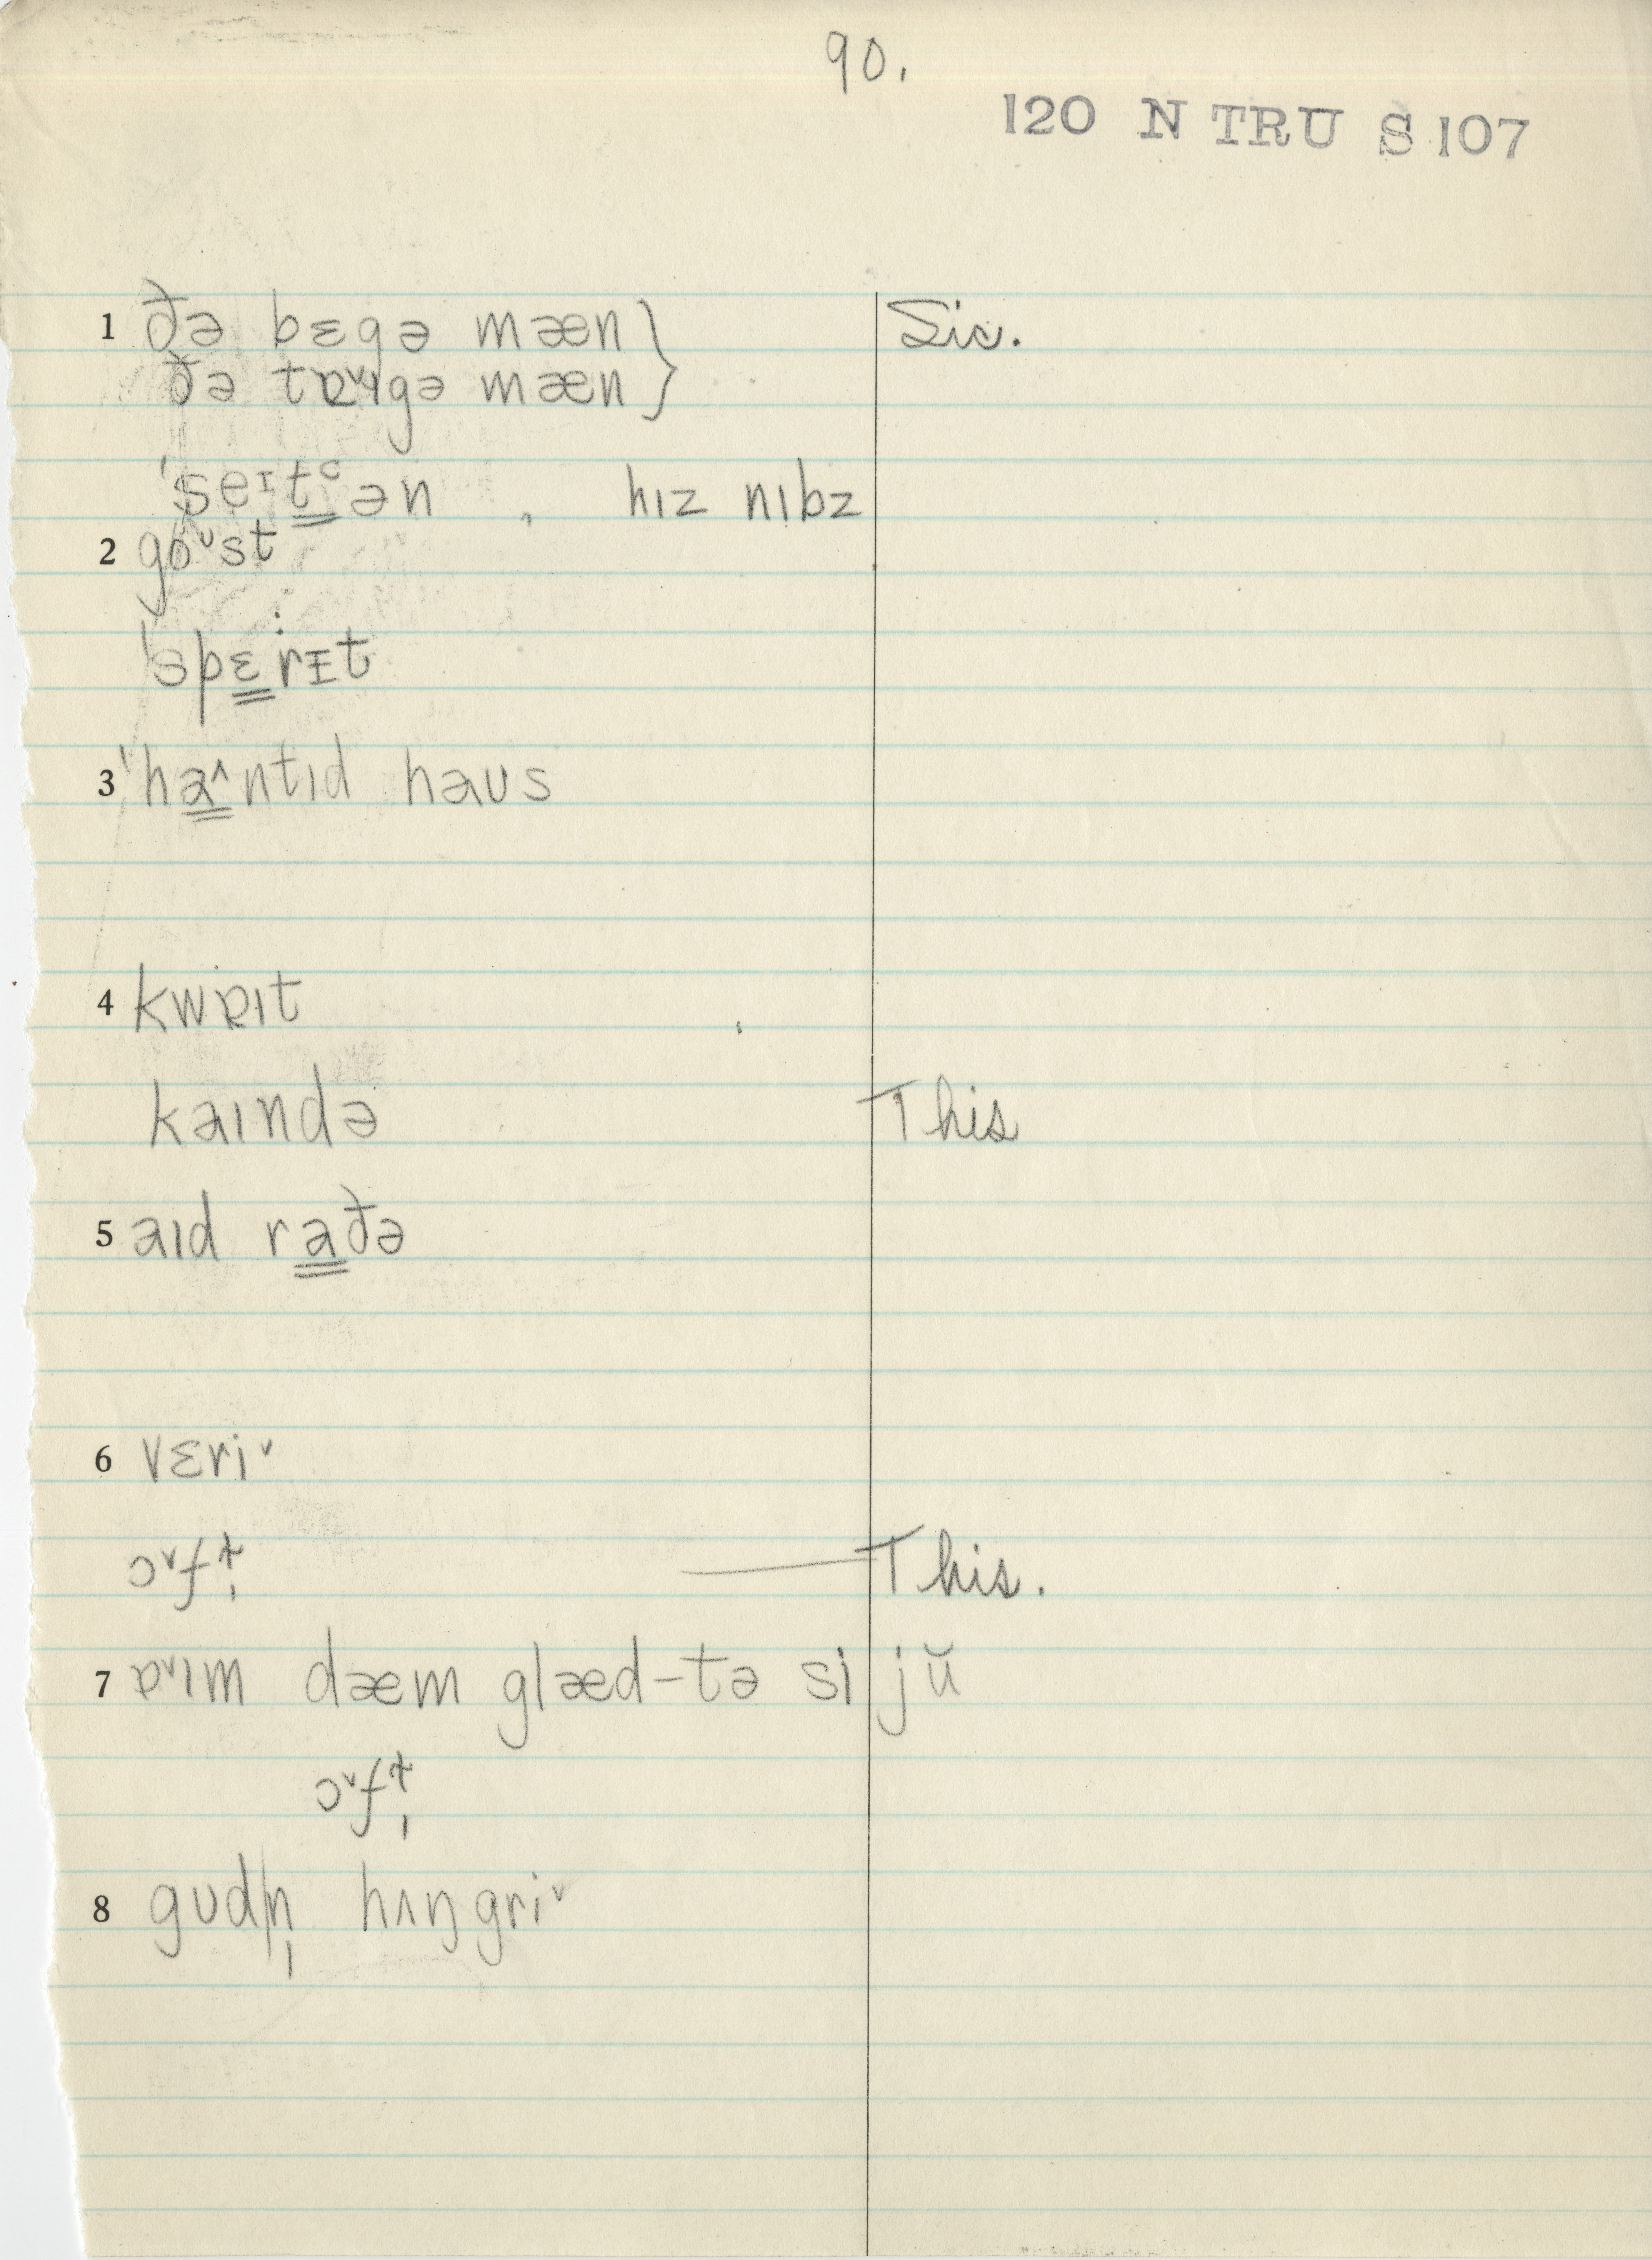 90.
120 N TRU S 107
1 ðə bɛgə mæn } Sic.
ðə tɐˇɪgə mæn
ˈseᶦt̳ᶜən , hɪz nɪbz
2 goᶸst
ˈspɛ̳rɪt
3 ˈha̳^ntɪd haʊs
4 kwɐɪt
kaɪndə This
5 aɪd ra̳ðə
6 vɛriˇ
ɔˇfɫ̩ — This.
7 ɐˇɪm dæm glæd-tə si jŭ
ɔˇfɫ̩
8 gʊdn̩ hʌŋgriˇ